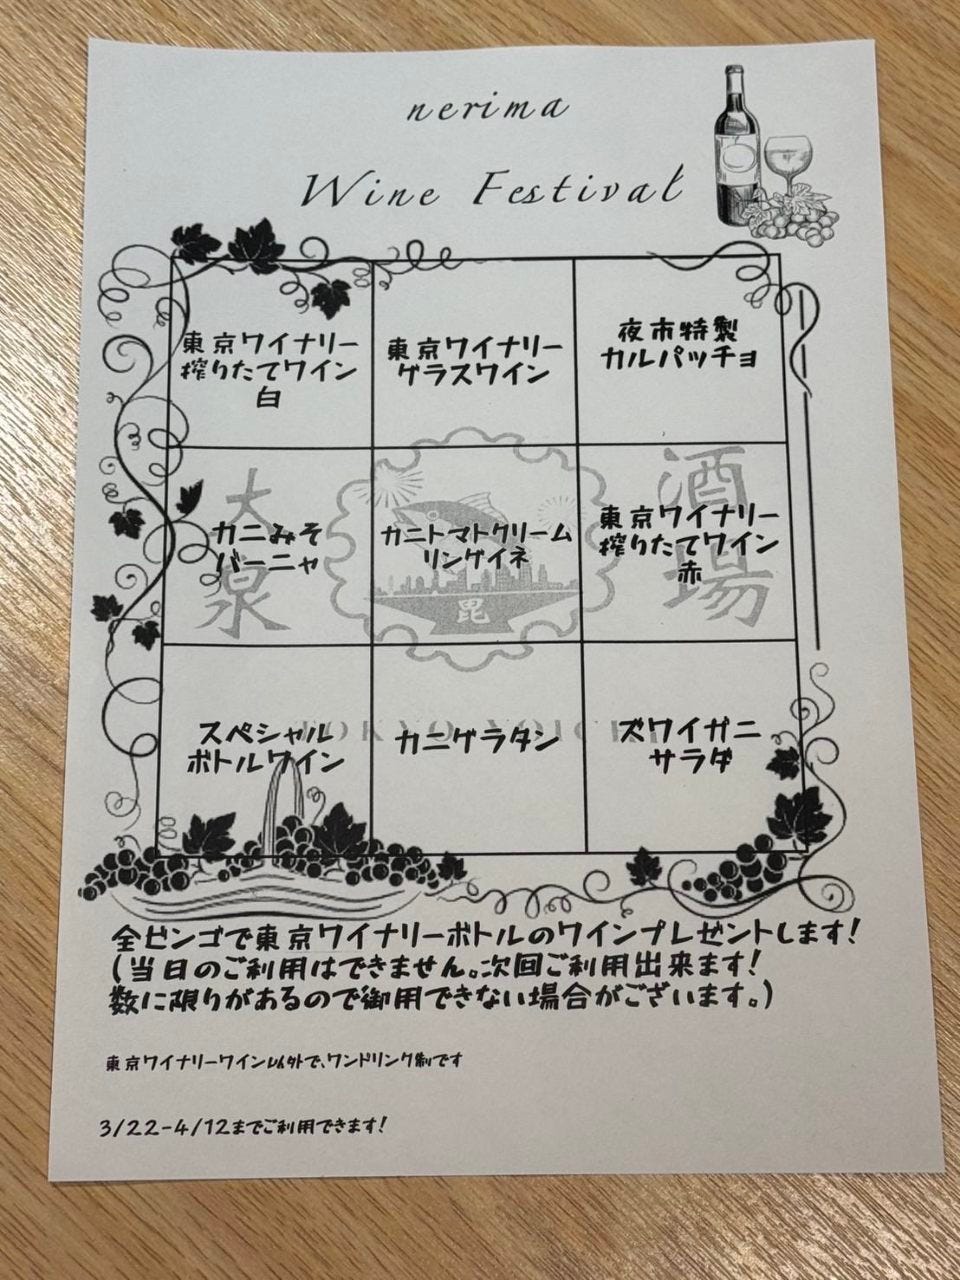 nerima
Wine Festival
東京ワイナリー
搾りたてワイン
白
東京ワイナリー
グラスワイン
夜市特製
カルパッチョ
カニみそ
バーニャ
カニトマトクリーム
リングイネ
東京ワイナリー
搾りたてワイン
赤
スペシャル
ボトルワイン
カニグラタン
ズワイガニ
サラダ
大泉
酒場
毘
TOKYO YOICHI
全ビンゴで東京ワイナリーボトルのワインプレゼントします!
(当日のご利用はできません。次回ご利用出来ます!
数に限りがあるので御用できない場合がございます。)
東京ワイナリーワイン以外で、ワンドリンク制です
3/22-4/12までご利用できます!